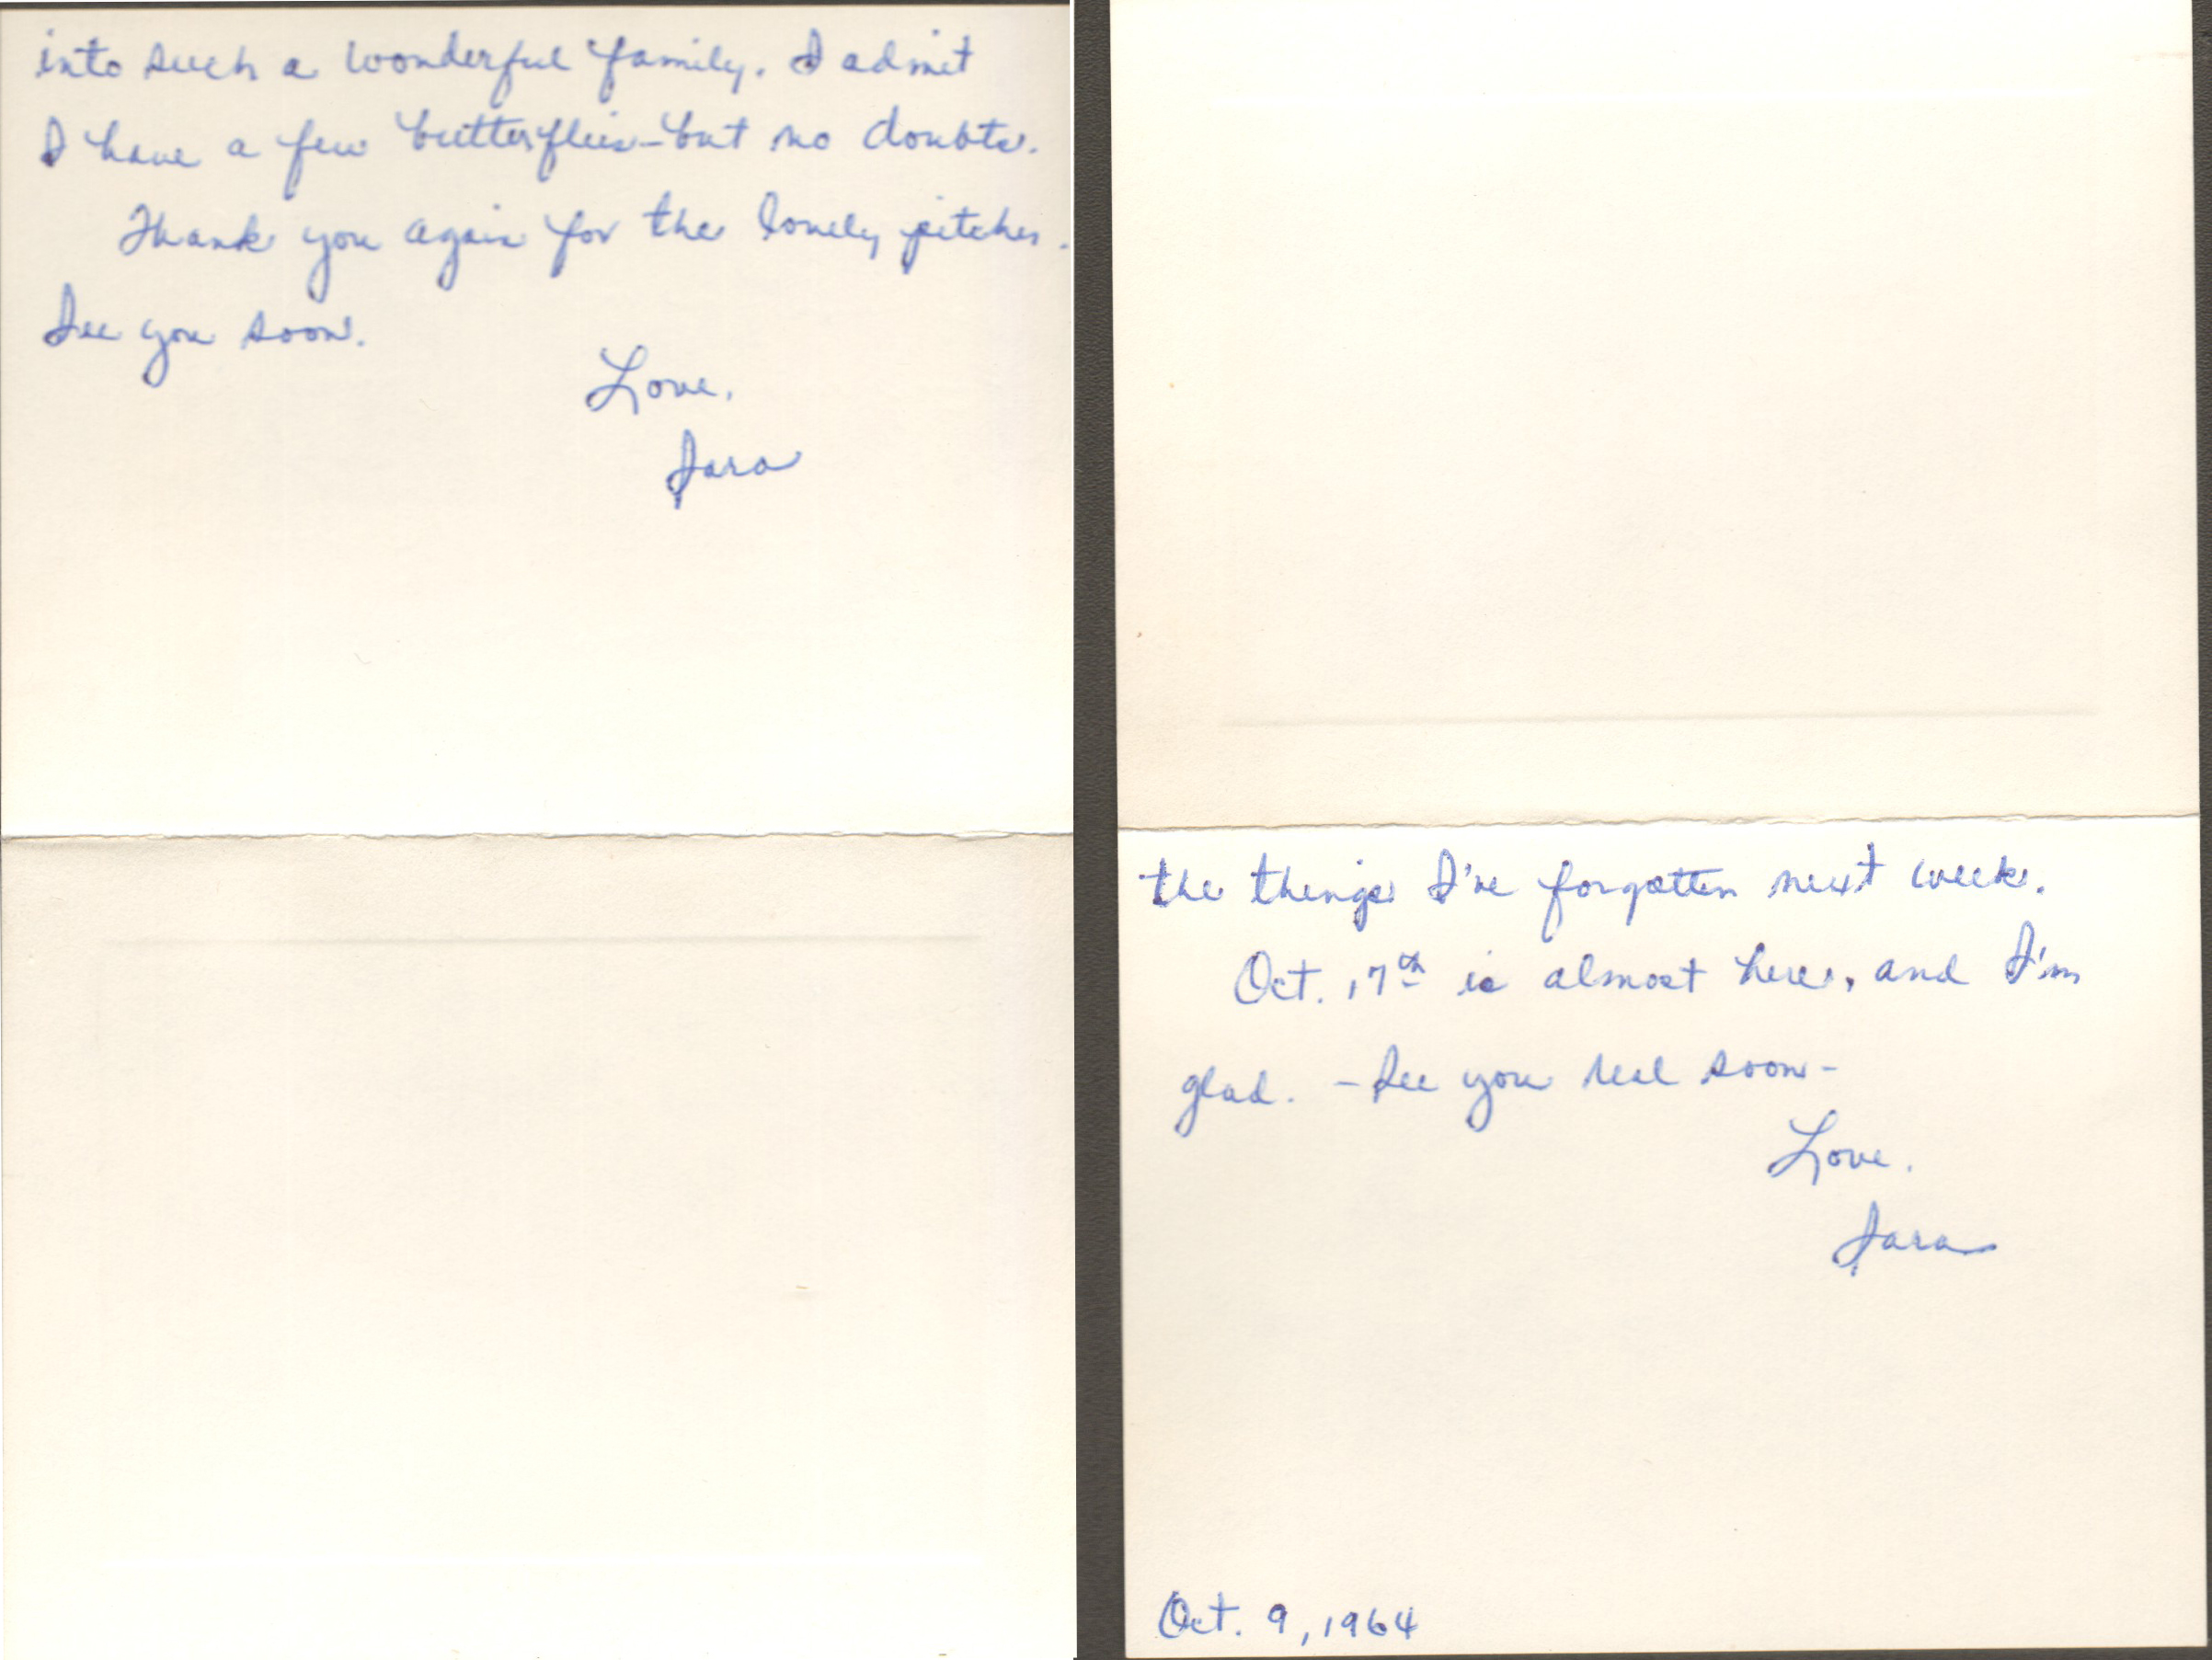 into such a wonderful family. I admit
I have a few butterflies – but no doubts.
Thank you again for the lovely pitcher.
See you soon.
Love,
Sara
the things I've forgotten next week.
Oct. 17th is almost here, and I'm
glad. – See you real soon –
Love,
Sara
Oct. 9, 1964